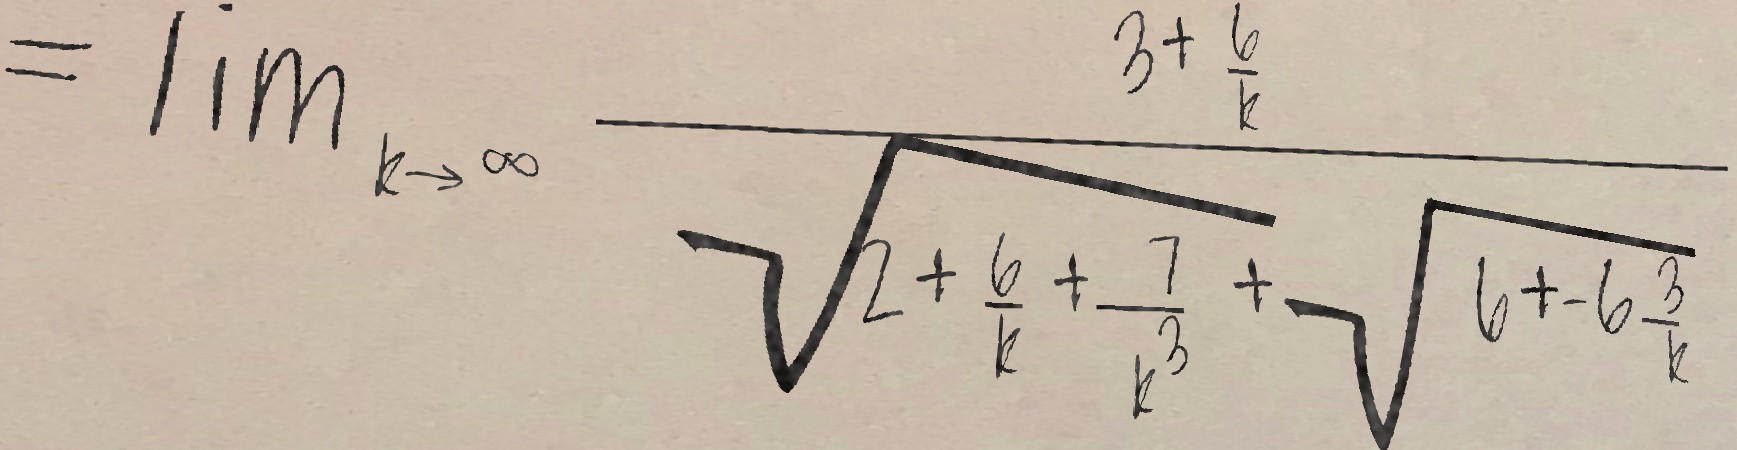 = \lim_{k \to \infty} \frac{3 + \frac{6}{k}}{\sqrt{2 + \frac{6}{k} + \frac{7}{k^3}} + \sqrt{6 + -6 \frac{3}{k}}}